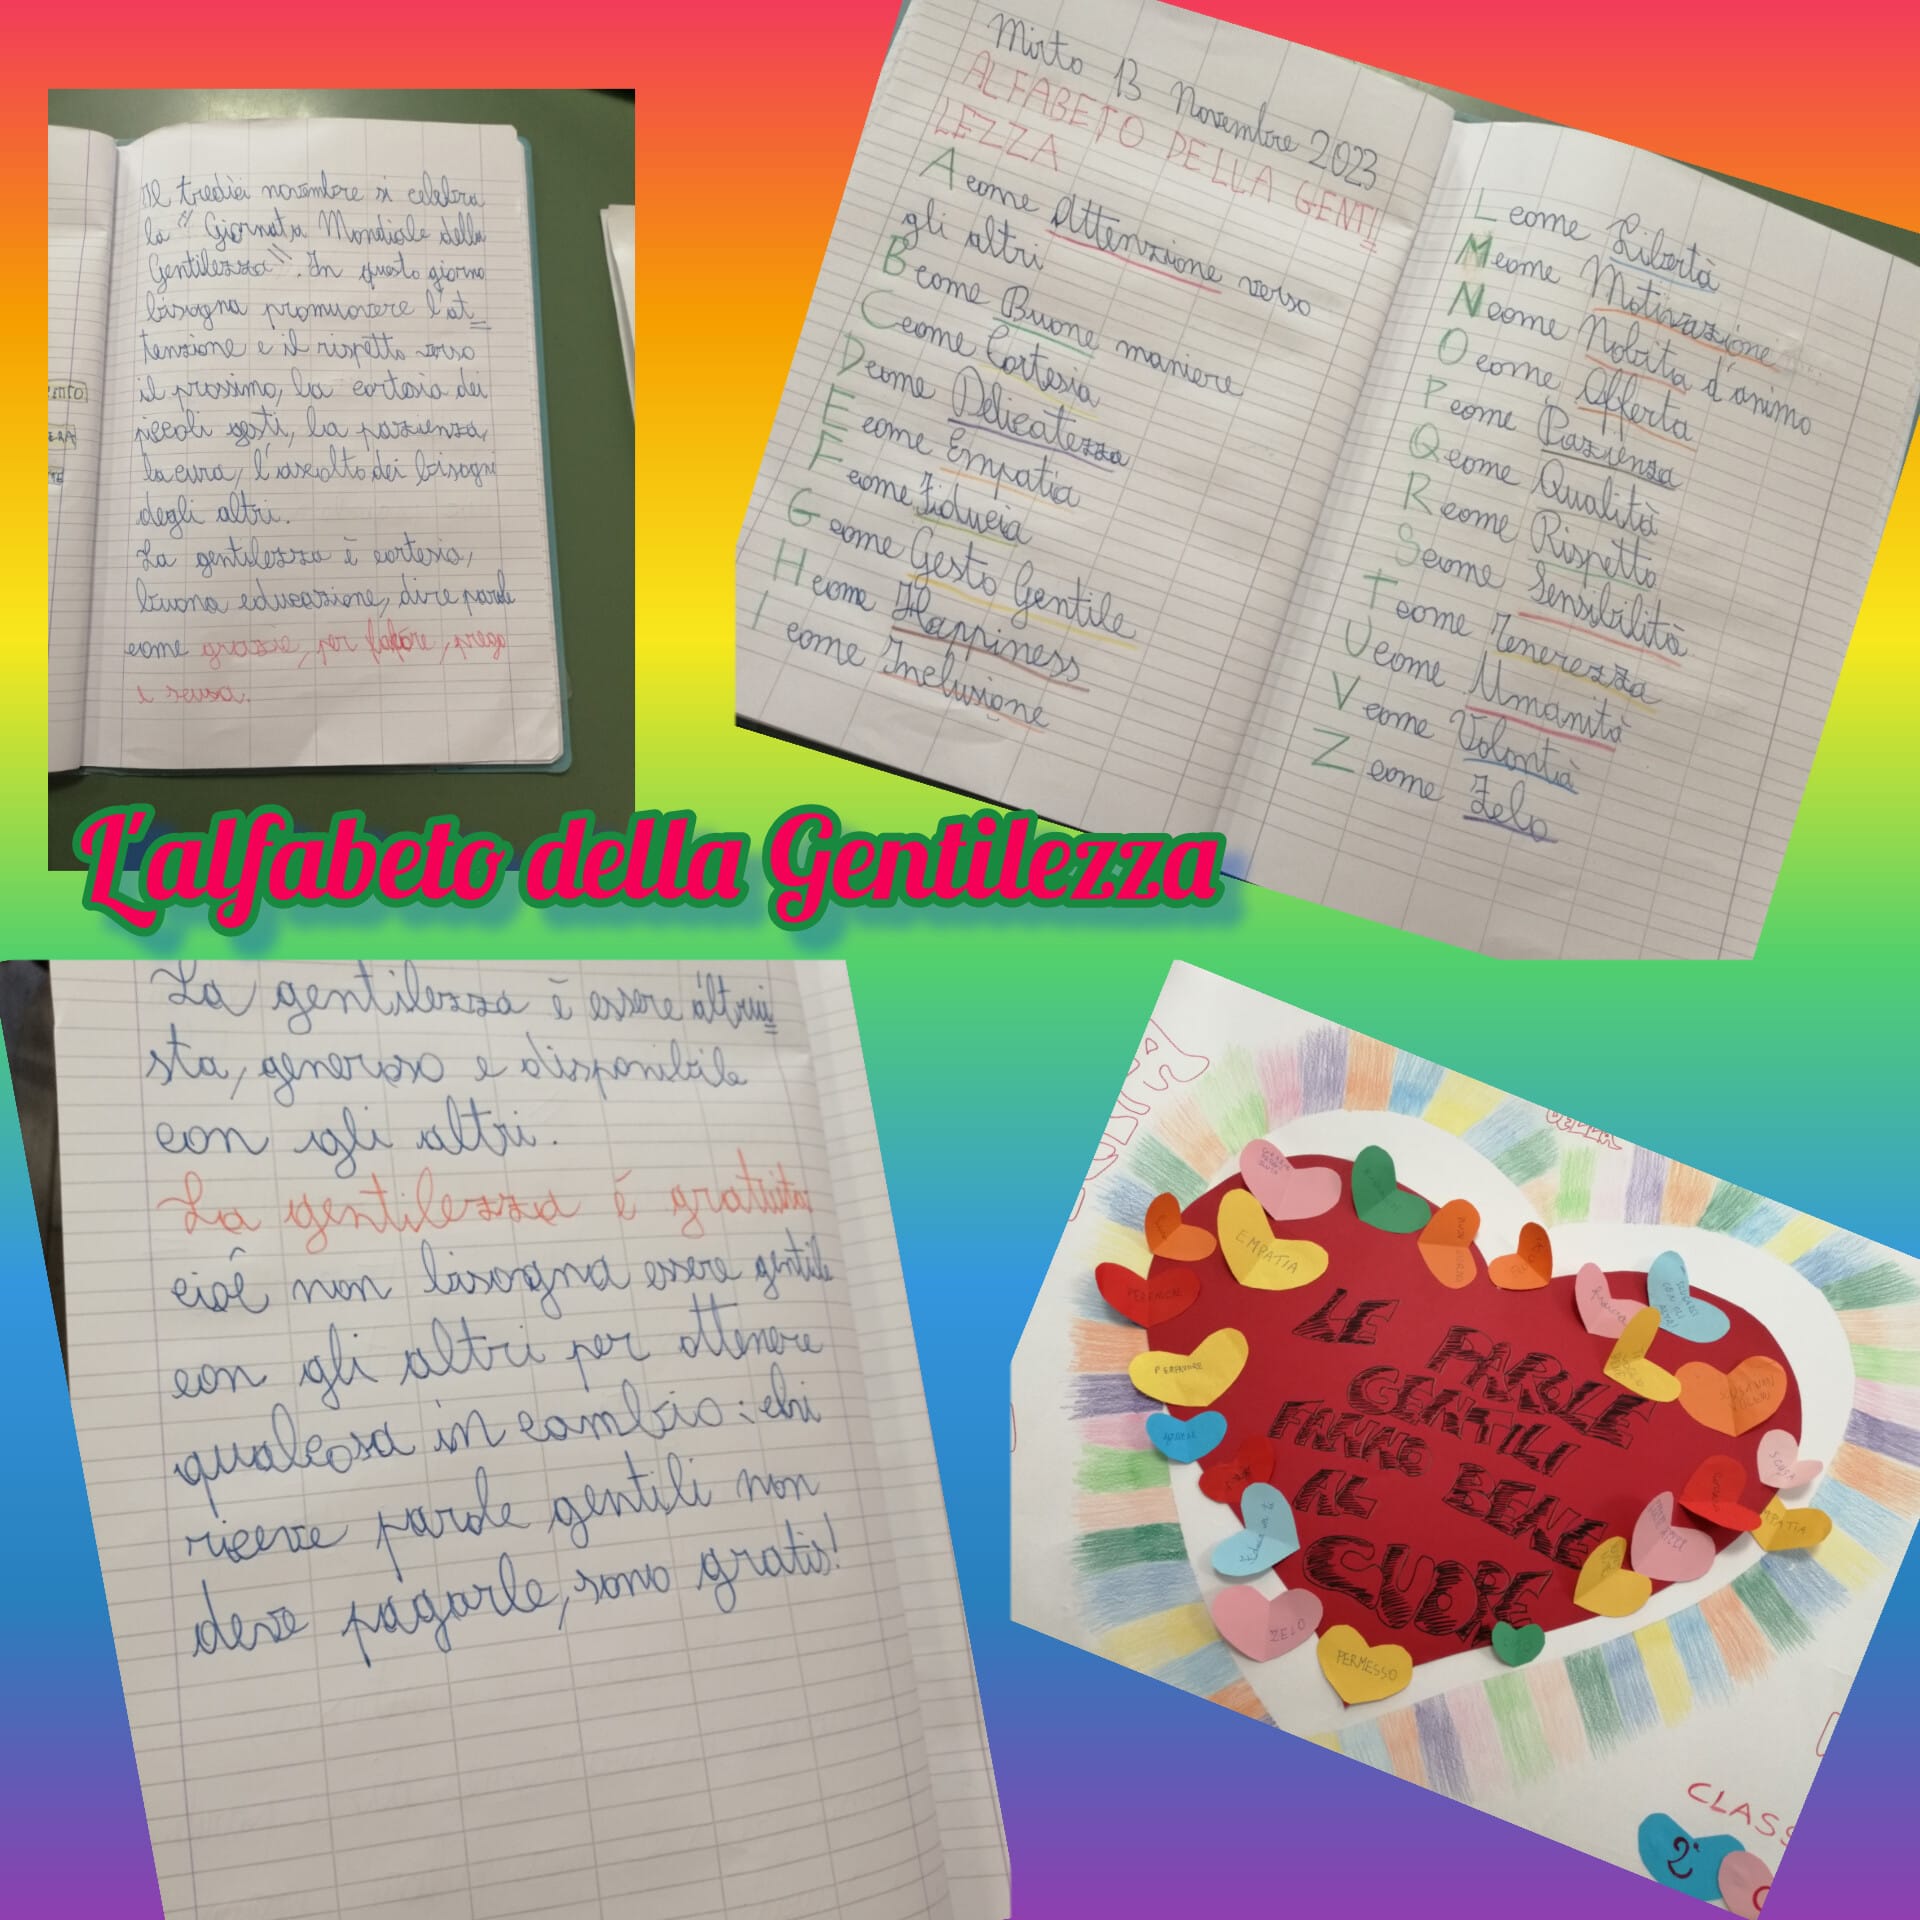 Il tredici novembre si celebra
la "Giornata Mondiale della
Gentilezza". In questo giorno
bisogna promuovere l'at_
tenzione e il rispetto verso
il prossimo, la cortesia dei
piccoli gesti, la pazienza,
la cura, l'ascolto dei bisogni
degli altri.
La gentilezza è cortesia,
buona educazione, dire parole
come grazie, per favore, prego
e scusa.
Mirto 13 Novembre 2023
ALFABETO DELLA GENTI
LEZZA
A come Attenzione verso
gli altri
B come Buone maniere
C come Cortesia
D come Delicatezza
E come Empatia
F come Fiducia
G come Gesto Gentile
H come Happiness
I come Inclusione
L come Libertà
M come Motivazione
N come Nobiltà d'animo
O come Offerta
P come Pazienza
Q come Qualità
R come Rispetto
S come Sensibilità
T come Tenerezza
U come Umanità
V come Volontà
Z come Zelo
L'alfabeto della Gentilezza
La gentilezza è essere altrui
sta, generoso e disponibile
con gli altri.
La gentilezza è gratuita
cioè non bisogna essere gentile
con gli altri per ottenere
qualcosa in cambio: chi
riceve parole gentili non
deve pagarle, sono gratis!
DELLA
EMPATIA
PERFAVORE
LE PAROLE
GENTILI
FANNO BENE
AL
CUORE
SCUSA
EMPATIA
ZELO
PERMESSO
CLASS
2ª